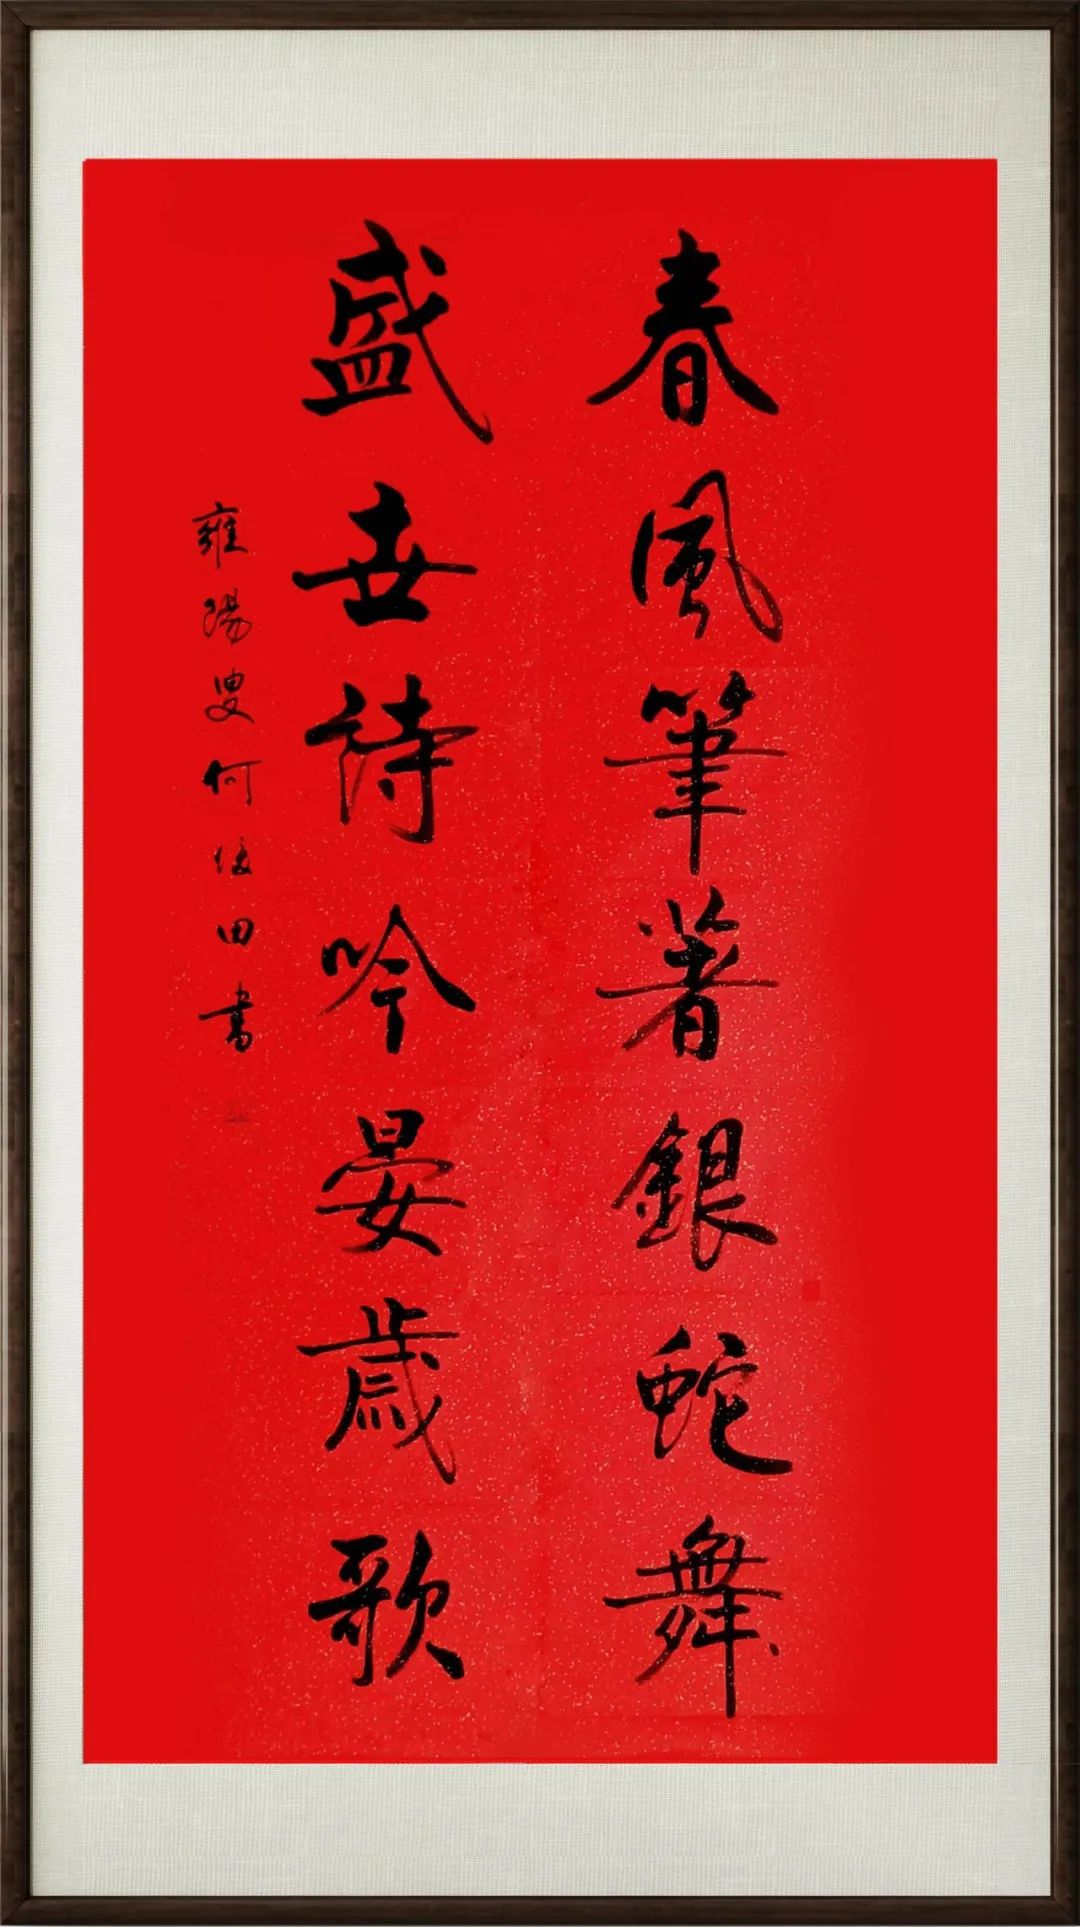 春風筆著銀蛇舞
盛世詩吟晏歲歌
雍陽叟何俊田書